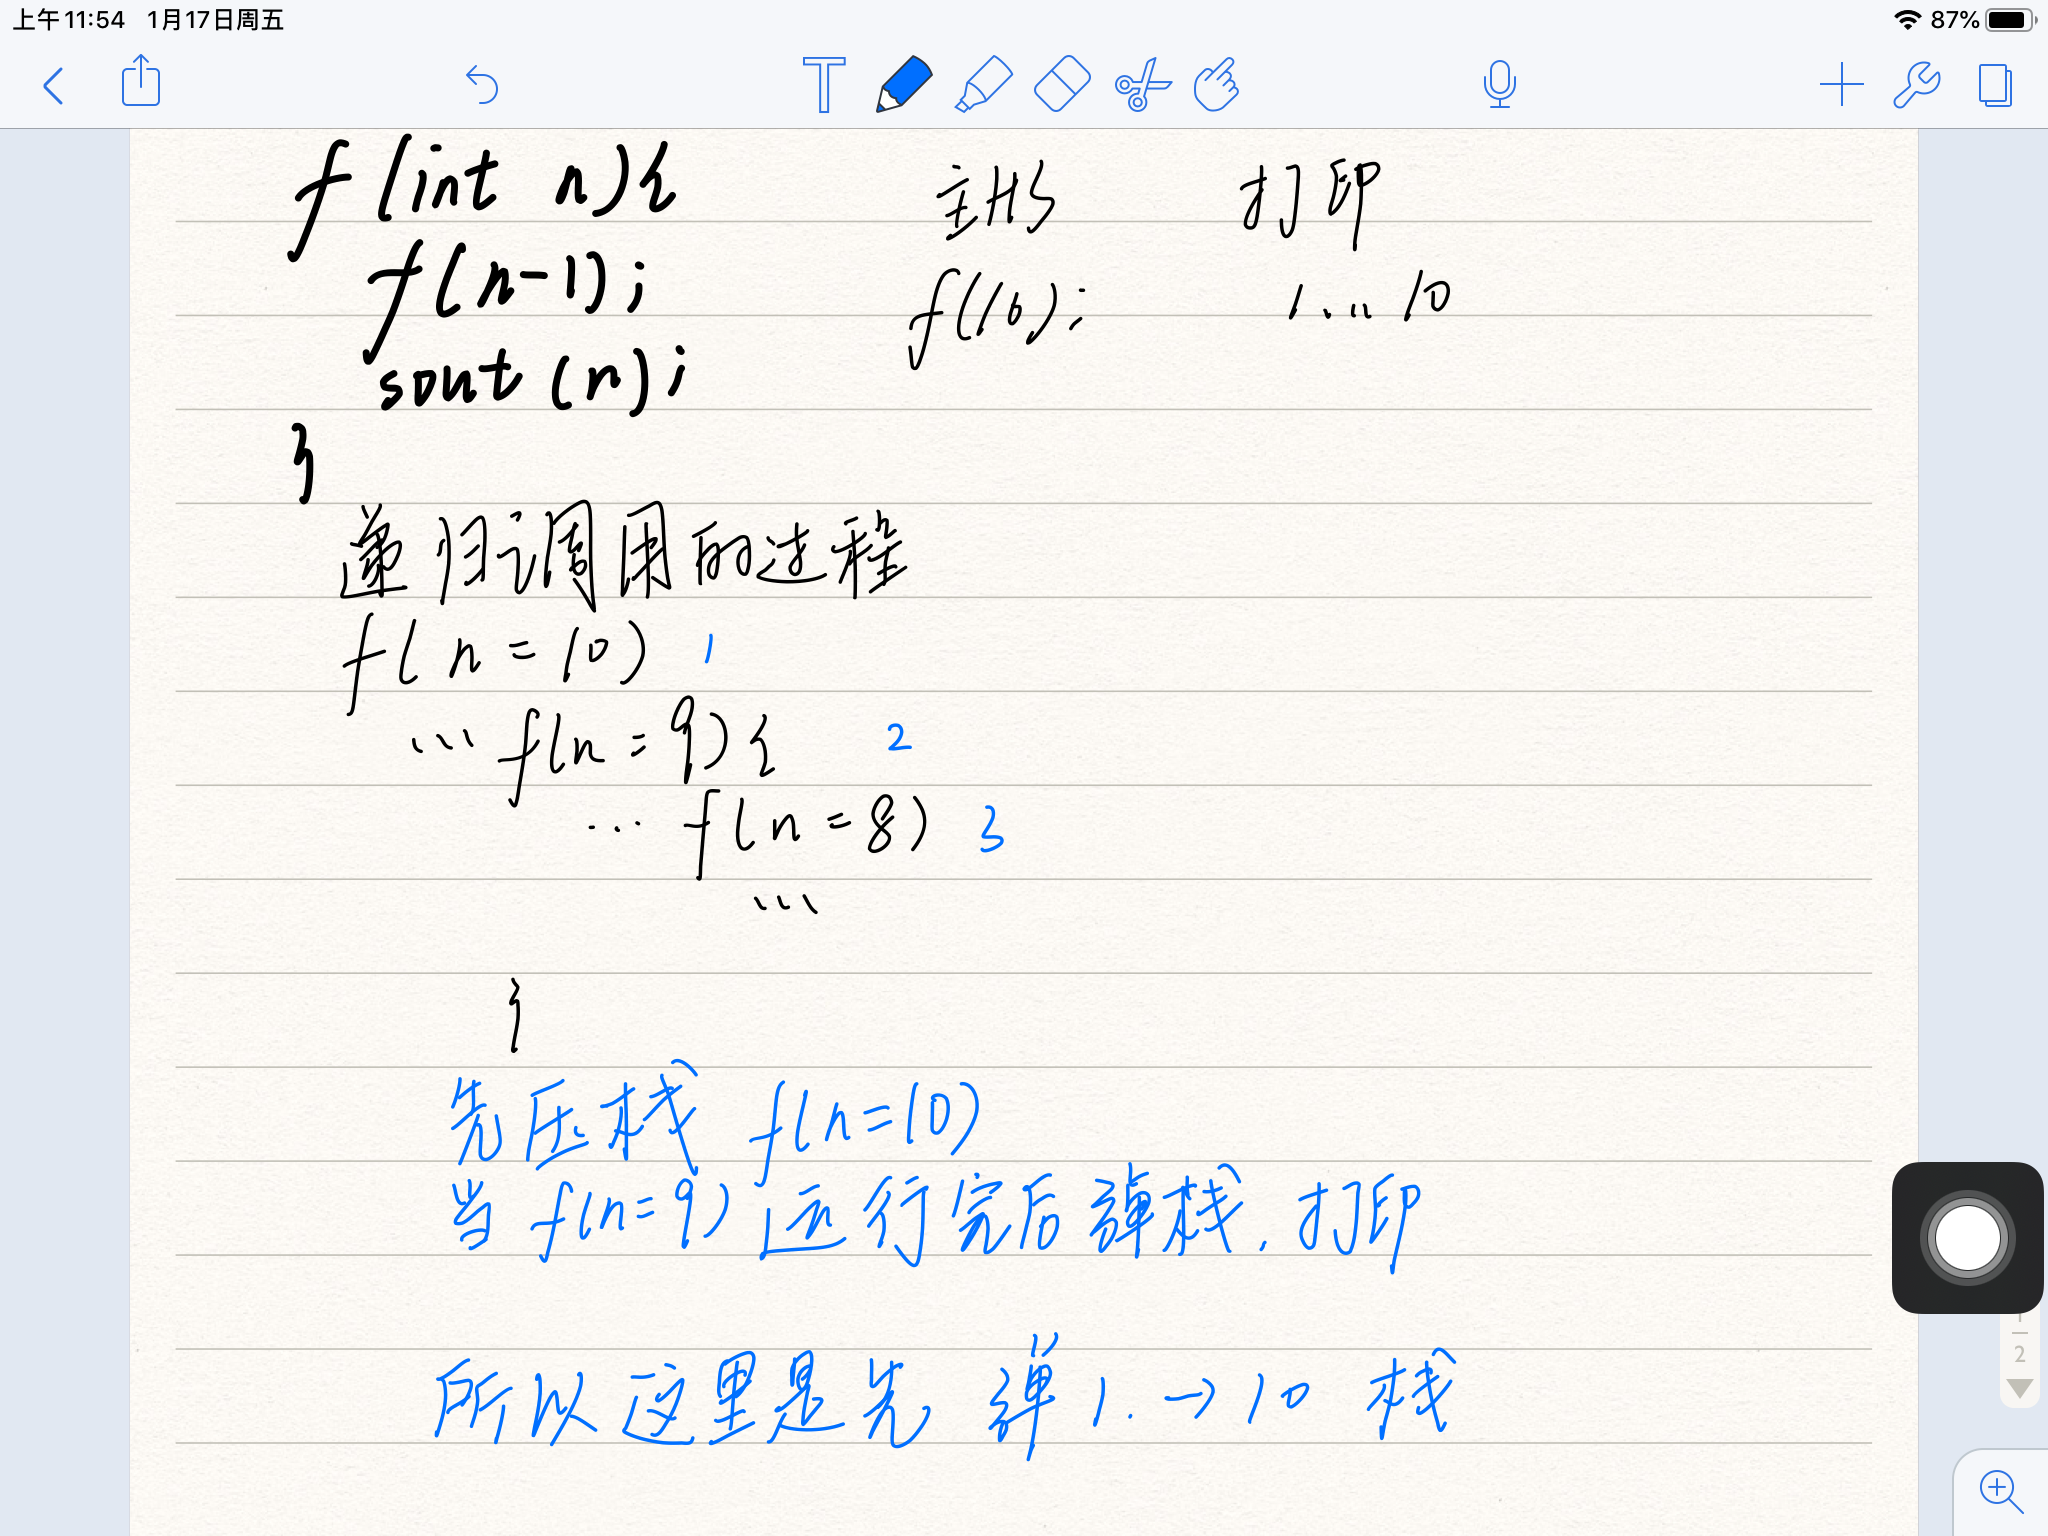 上午11:54 1月17日周五 87%
T
f(int n){ 打印
f(n-1); f(10); 1...10
sout(n);
}
递归调用的过程
f(n=10) 1
... f(n=9){ 2
... f(n=8) 3
...
}
先压栈 f(n=10)
当f(n=9)运行完后弹栈.打印
所以这里是先 弹1.→10 栈
1
2